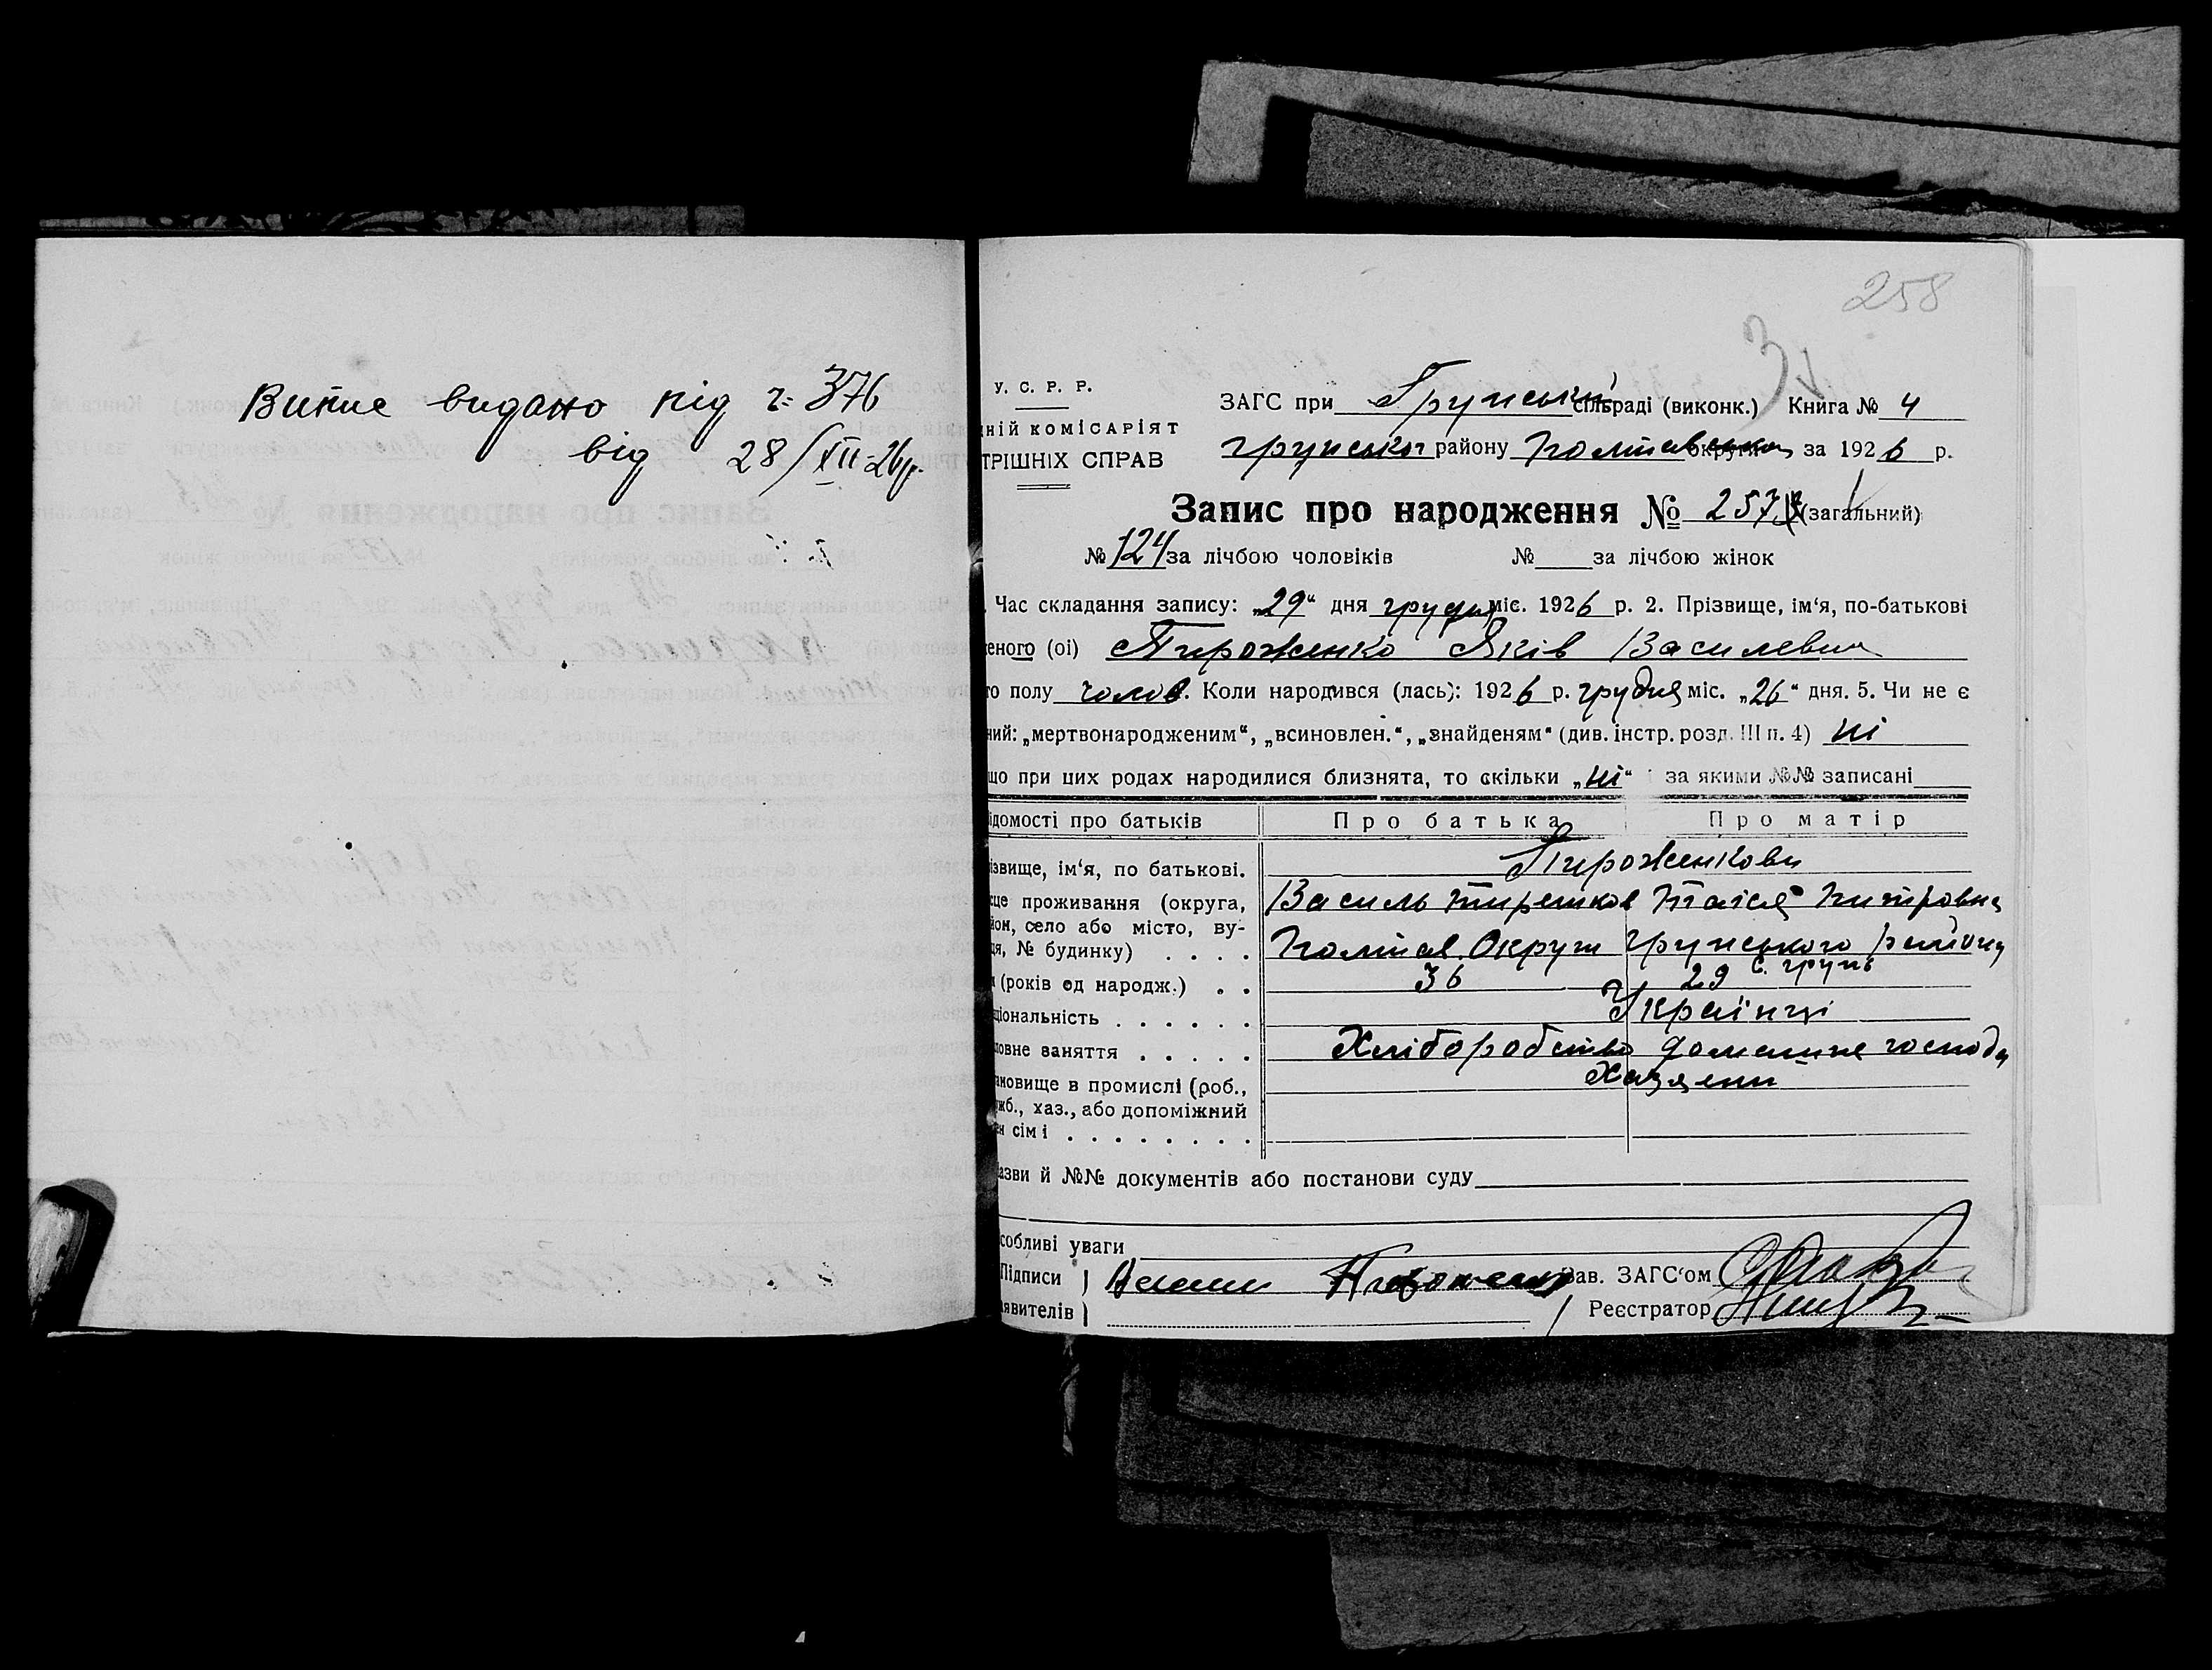 Випис видано під ч: 376
від 28/XII-26 р.
258
У. С. Р. Р.
ЗАГС при Грунській сільраді (виконк.) Книга № 4
дній комісаріят
ТРІШНІХ СПРАВ
грунської району Полтавської округи за 1926 р.
Запис про народження № 257 (загальний)
№ 124 за лічбою чоловіків № за лічбою жінок
. Час складання запису: „29“ дня грудня міс. 1926 р. 2. Прізвище, ім‘я, по-батькові
еного (ої) Пироженко Яків Василевич
го полу чолов. Коли народився (лась): 1926 р. грудня міс. „26“ дня. 5. Чи не є
ний: „мертвонародженим“, „всиновлен.“, „знайденям“ (див. інстр. розд. III п. 4) ні
що при цих родах народилися близнята, то скільки „ні“ і за якими №№ записані
ідомості про батьків Про батька Про матір
ізвище, ім‘я, по батькові. Пироженкови
сце проживання (округа, Василь Таїся
йон, село або місто, ву-
ця, № будинку) . . . . Полтав. Округи Грунського району
с. Грунь
(років од народж.) . . 36 29
ціональність . . . . . . Українці
ловне заняття . . . . . Хліборобство домашнє господ
ановище в промислі (роб., Хазяени
жб., хаз., або допоміжний
ен сімі . . . . . . . .
азви й №№ документів або постанови суду
собливі уваги
Підписи Пироженко Зав. ЗАГС‘ом
явителів Реєстратор